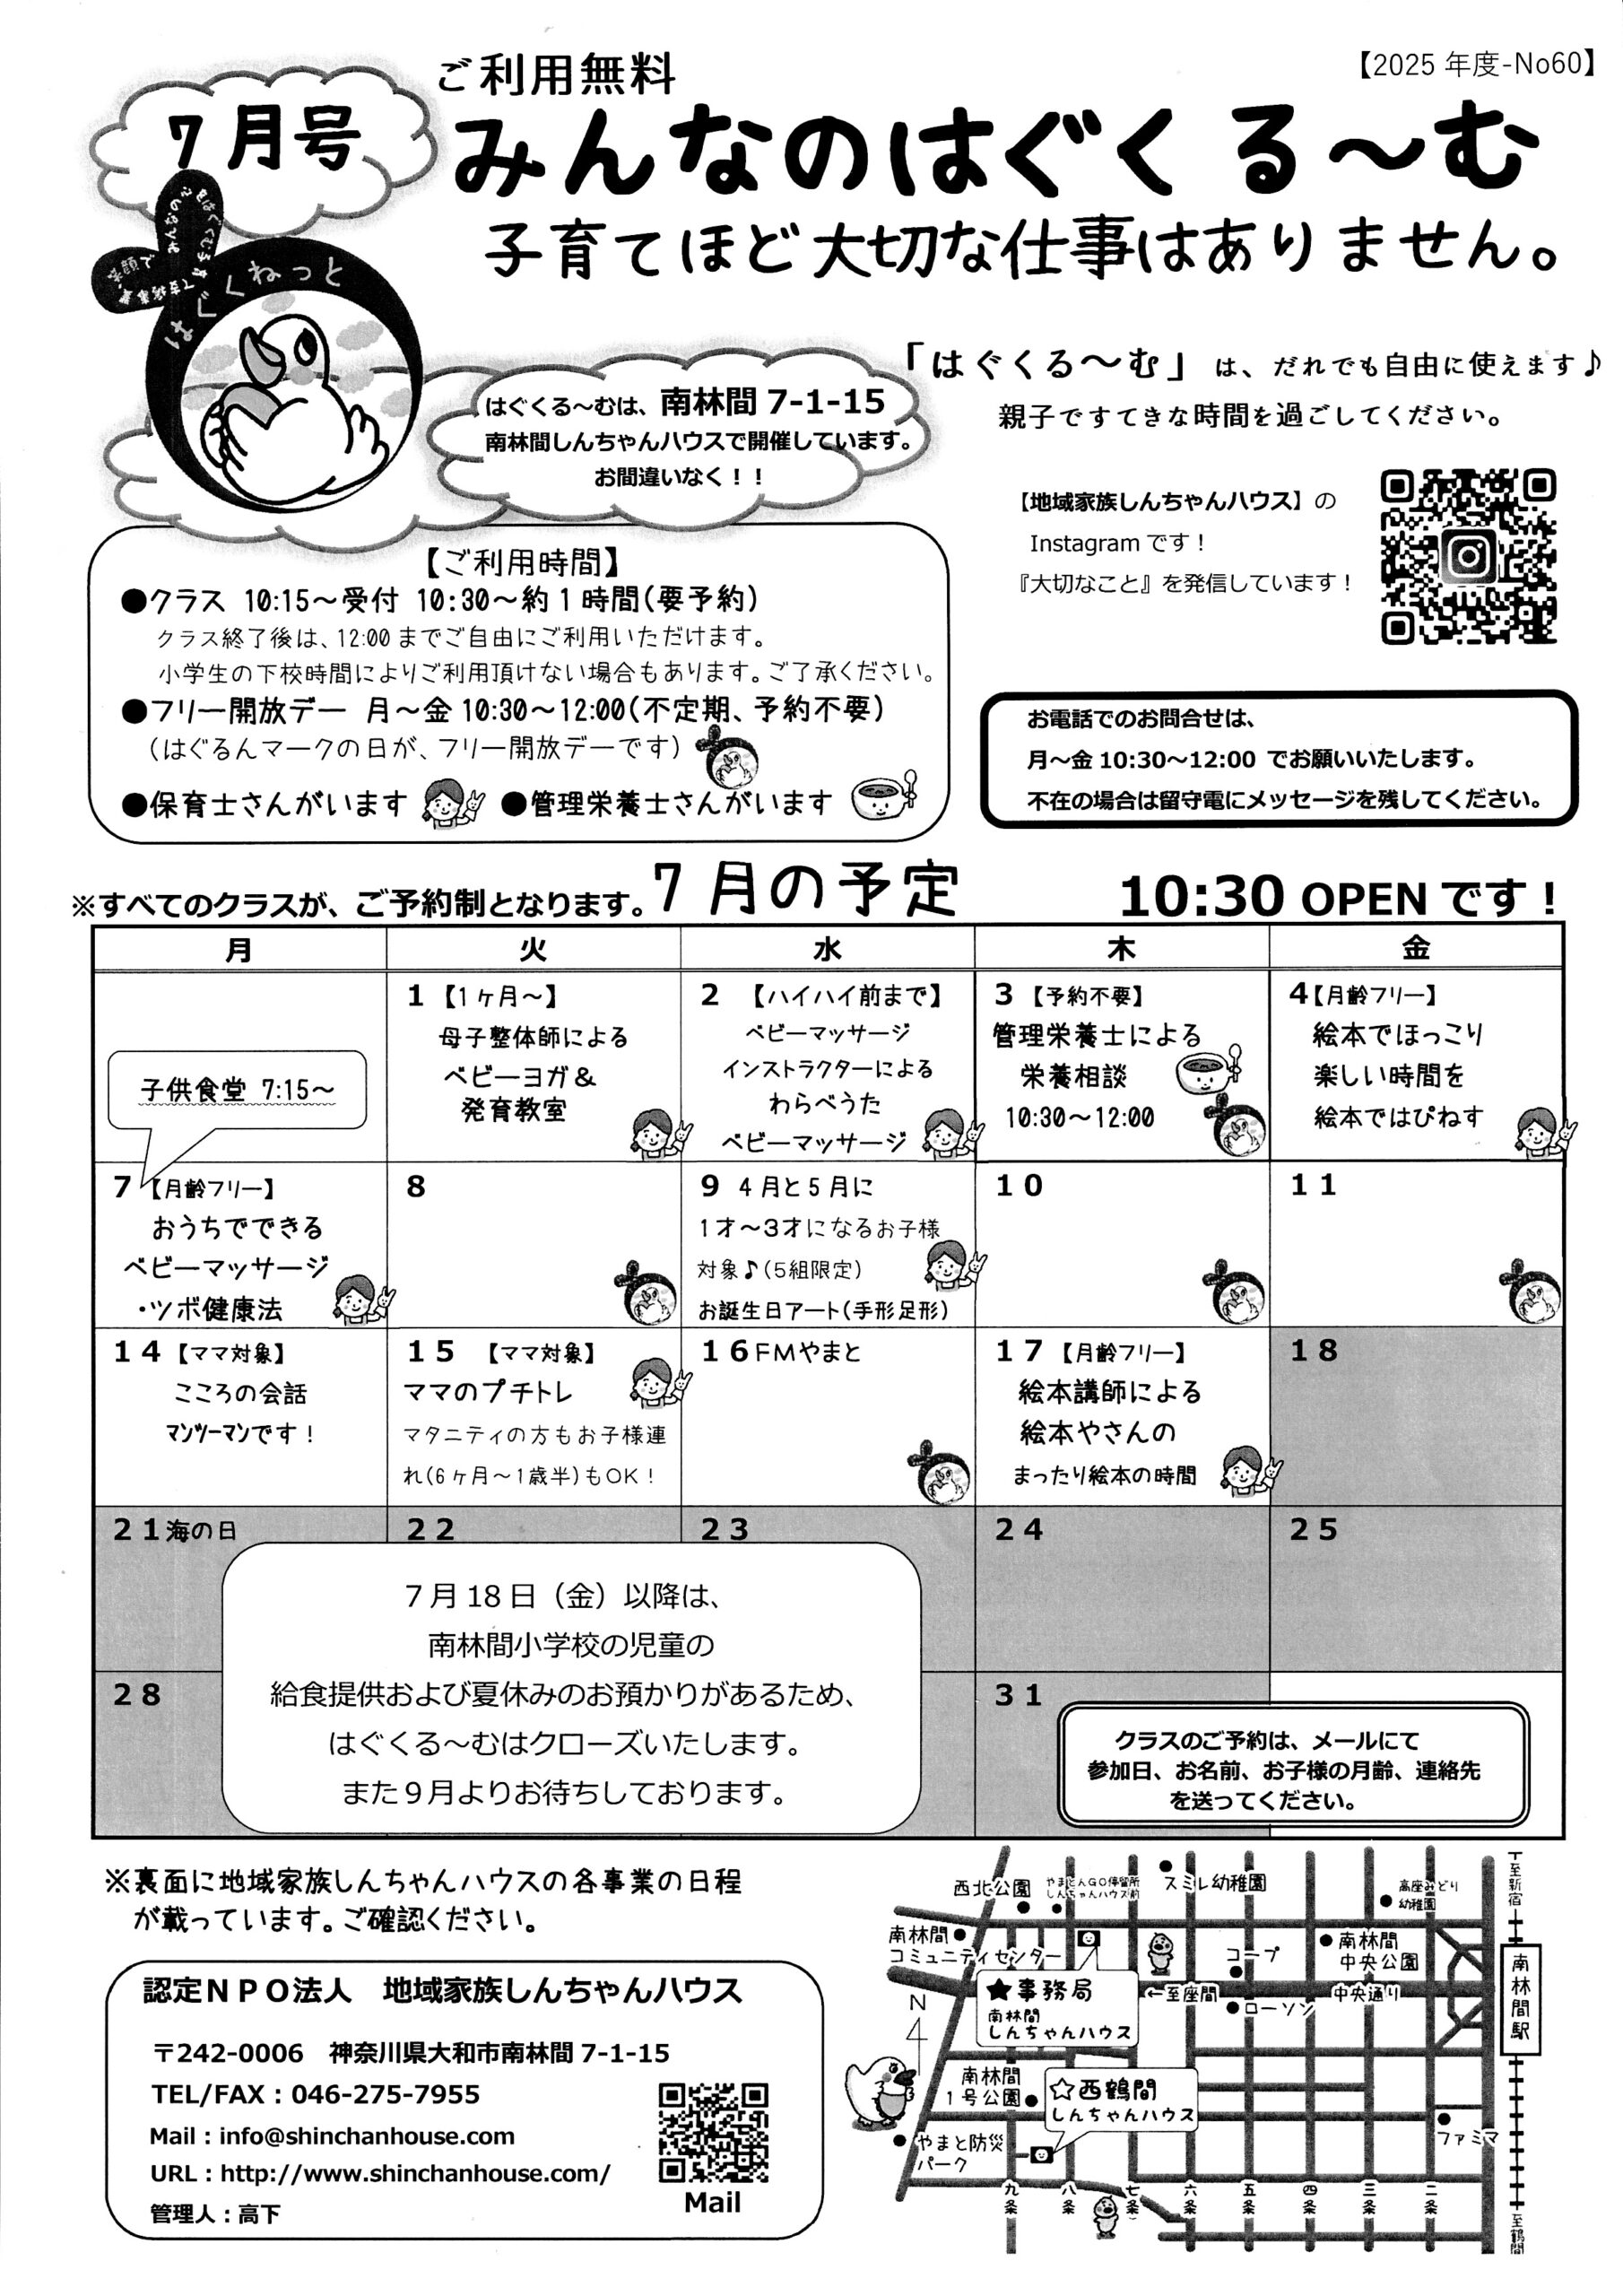 【2025 年度-No60】
7月号
ご利用無料
みんなのはぐくる～む
子育てほど大切な仕事はありません。
はぐくねっと
はぐくる～むは、南林間 7-1-15
南林間しんちゃんハウスで開催しています。
お間違いなく！！
「はぐくる～む」は、だれでも自由に使えます♪
親子ですてきな時間を過ごしてください。
【地域家族しんちゃんハウス】の
Instagram です！
『大切なこと』を発信しています！
【ご利用時間】
●クラス 10:15～受付 10:30～約1時間(要予約)
クラス終了後は、12:00 までご自由にご利用いただけます。
小学生の下校時間によりご利用頂けない場合もあります。ご了承ください。
●フリー開放デー 月～金 10:30～12:00(不定期、予約不要)
(はぐるんマークの日が、フリー開放デーです)
●保育士さんがいます ●管理栄養士さんがいます
お電話でのお問合せは、
月～金 10:30～12:00 でお願いいたします。
不在の場合は留守電にメッセージを残してください。
※すべてのクラスが、ご予約制となります。
7月の予定
10:30 OPEN です！
月 火 水 木 金
子供食堂 7:15～
1【1ヶ月～】
母子整体師による
ベビーヨガ＆
発育教室
2 【ハイハイ前まで】
ベビーマッサージ
インストラクターによる
わらべうた
ベビーマッサージ
3【予約不要】
管理栄養士による
栄養相談
10:30～12:00
4【月齢フリー】
絵本でほっこり
楽しい時間を
絵本ではぴねす
7【月齢フリー】
おうちでできる
ベビーマッサージ
・ツボ健康法
8
9 4月と5月に
1才～3才になるお子様
対象♪(5組限定)
お誕生日アート(手形足形)
10
11
14【ママ対象】
こころの会話
マンツーマンです！
15 【ママ対象】
ママのプチトレ
マタニティの方もお子様連
れ(6ヶ月～1歳半)もOK！
16 FMやまと
17【月齢フリー】
絵本講師による
絵本やさんの
まったり絵本の時間
18
21 海の日
22
23
24
25
28
31
7月18日（金）以降は、
南林間小学校の児童の
給食提供および夏休みのお預かりがあるため、
はぐくる～むはクローズいたします。
また9月よりお待ちしております。
クラスのご予約は、メールにて
参加日、お名前、お子様の月齢、連絡先
を送ってください。
※裏面に地域家族しんちゃんハウスの各事業の日程
が載っています。ご確認ください。
認定ＮＰＯ法人 地域家族しんちゃんハウス
〒242-0006 神奈川県大和市南林間 7-1-15
TEL/FAX：046-275-7955
Mail：info@shinchanhouse.com
URL：http://www.shinchanhouse.com/
管理人：高下
Mail
西北公園
やまとんGO停留所
しんちゃんハウス前
スミレ幼稚園
高座みどり
幼稚園
至新宿
南林間
コミュニティセンター
コープ
南林間
中央公園
★事務局
南林間
しんちゃんハウス
←至座間
ローソン
中央通り
南林間駅
N
南林間
1号公園
☆西鶴間
しんちゃんハウス
やまと防災
パーク
ファミマ
九条 八条 七条 六条 五条 四条 三条 二条
至鶴間